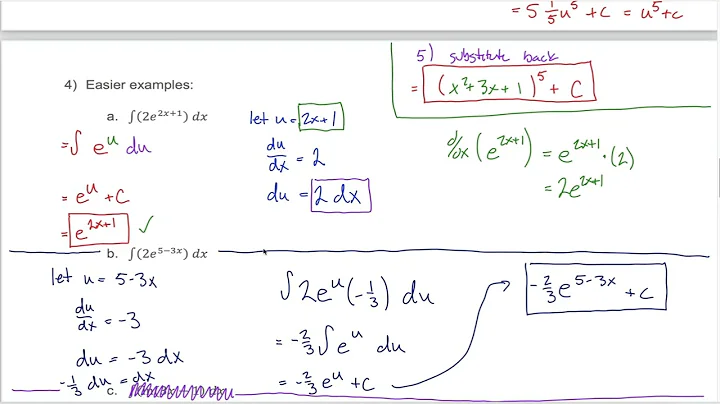 = 5 1/5 u⁵ + C = u⁵ + c
5) substitute back
= (x² + 3x + 1)⁵ + C
4) Easier examples:
a. ∫(2e^{2x+1}) dx
= ∫ e^u du
= e^u + C
= e^{2x+1} ✓
let u = 2x+1
du/dx = 2
du = 2 dx
d/dx (e^{2x+1}) = e^{2x+1} · (2)
= 2e^{2x+1}
b. ∫(2e^{5−3x}) dx
let u = 5-3x
du/dx = -3
du = -3 dx
-1/3 du = dx
∫ 2e^u (-1/3) du
= -2/3 ∫ e^u du
= -2/3 e^u + C
-2/3 e^{5-3x} + C
c.